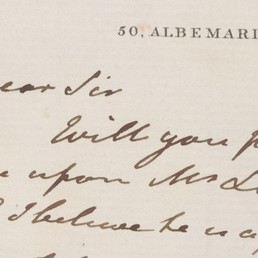 50, ALBEMARL
ear Sir
Will you p
upon Mr
I believe he is a